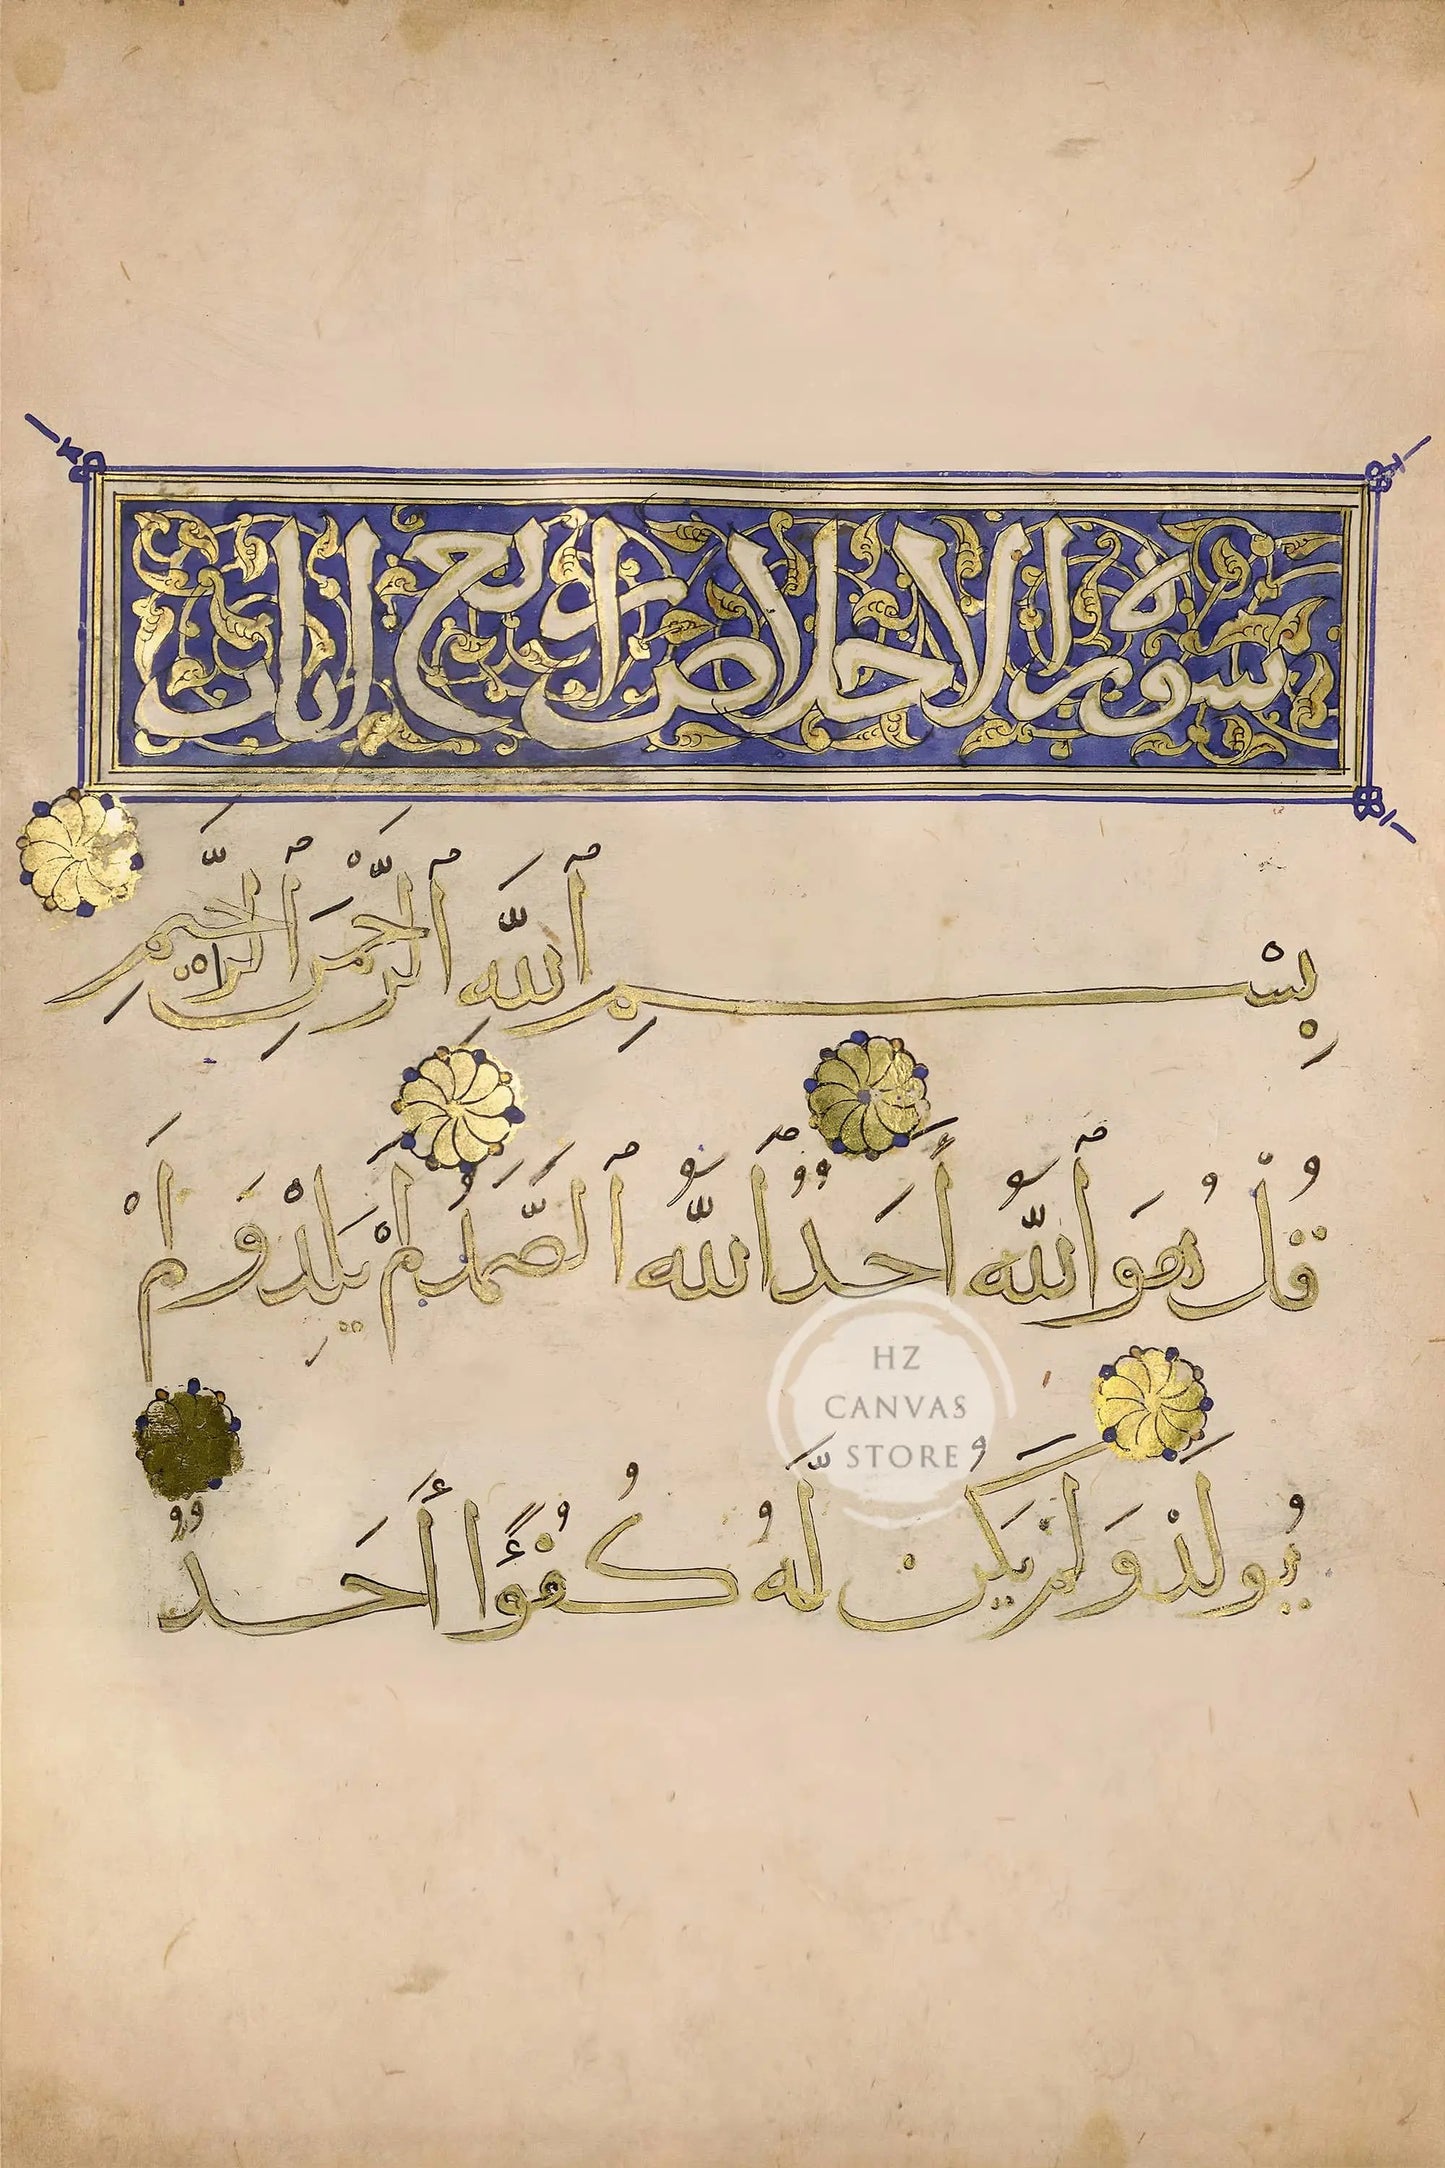 سورة الاخلاص اربع ايات
بِسْمِ ٱللَّهِ ٱلرَّحْمَٰنِ ٱلرَّحِيمِ
قُلْ هُوَ ٱللَّهُ أَحَدٌ ٱللَّهُ ٱلصَّمَدُ لَمْ يَلِدْ وَلَمْ
يُولَدْ وَلَمْ يَكُنْ لَّهُ كُفُؤًا أَحَدٌ
HZ
CANVAS
STORE